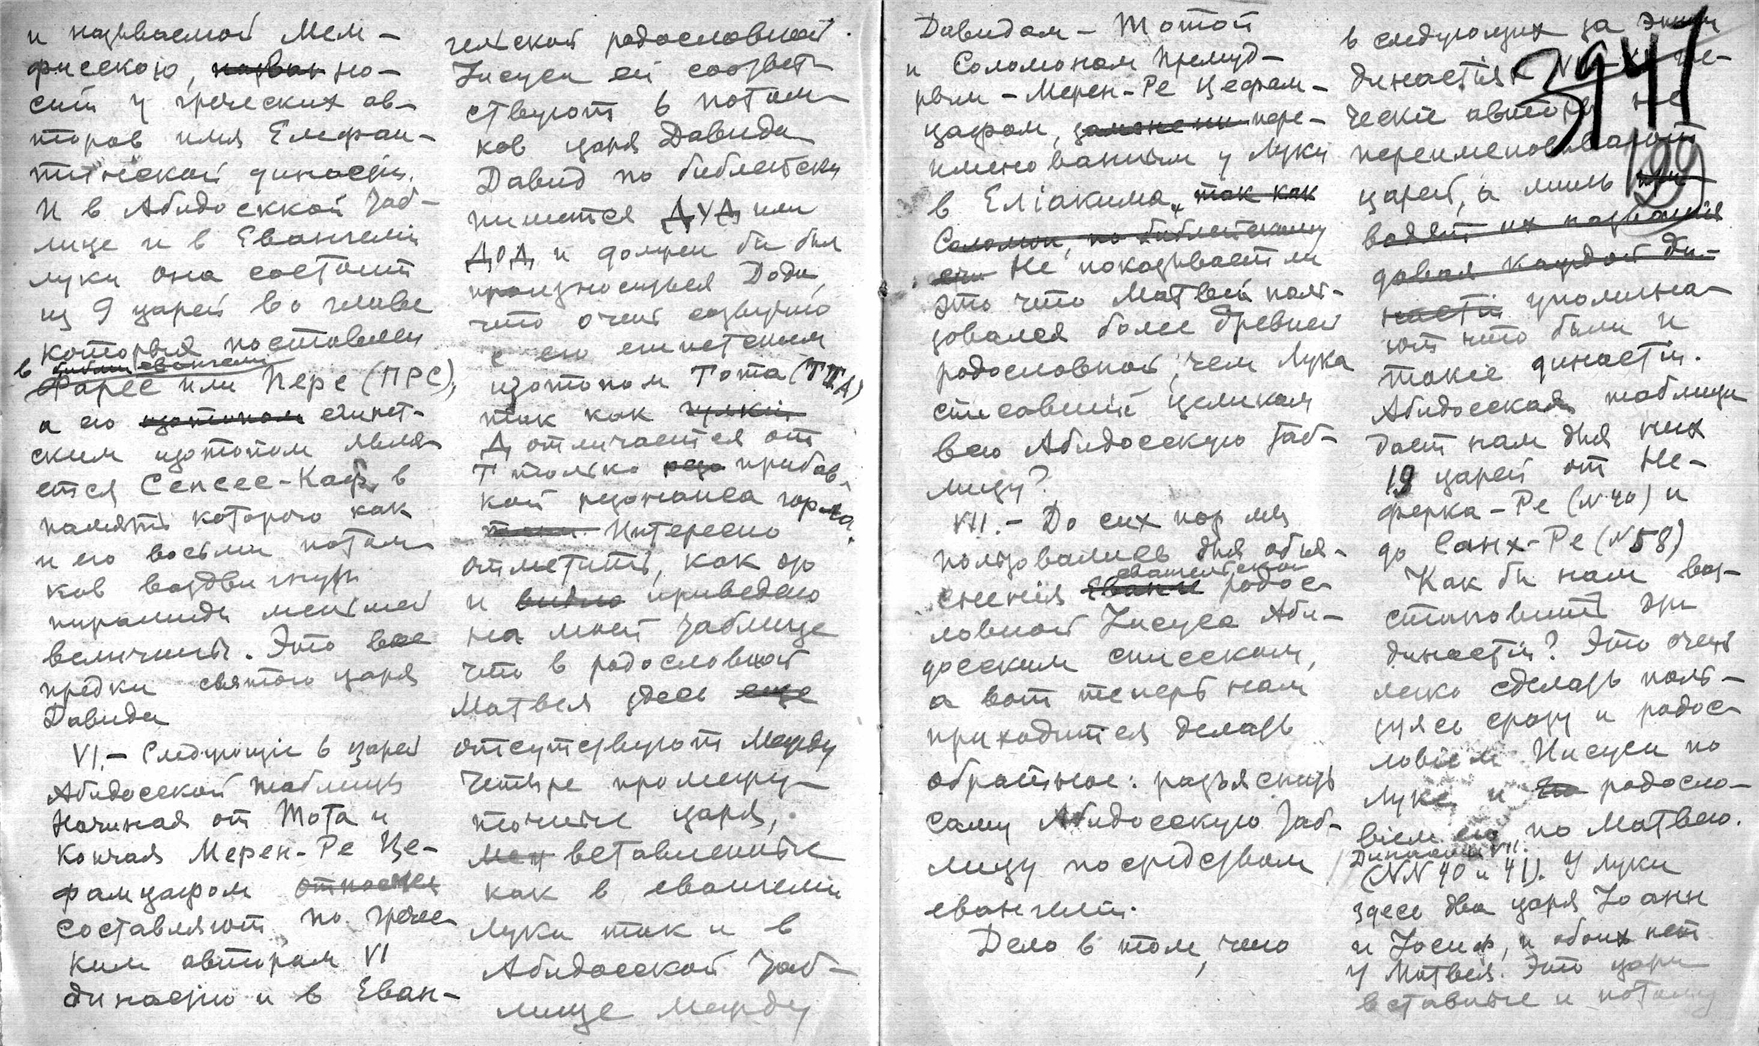 и называемой Мем-
фисскою, назван но-
сит у греческих ав-
торов имя Елефан-
тинской династіи.
И в Абидосской Таб-
лице и в Евангеліи
Луки она состоит
из 9 царей во главе
которых поставлен
в библии евангелии
Фарес или Перс (ПРС),
а его изотопом египет-
ским изотопом явля-
ется Сепсес-Каф, в
память которого как
и его восьми потом-
ков воздвигнуты
пирамиды меньшей
величины. Это все
предки святого царя
Давида
VI.— Следующіе 6 царей
Абидосской таблицы
Начиная от Тота и
Кончая Мерен-Ре Це-
фамцафом относят
составляют по грече-
ким авторам VI
династію и в Еван-
гельской родословной
Іисуса ей соответ-
ствуют 6 потом-
ков царя Давида
Давид по библейски
пишется ДУД или
ДОД и должен бы был
произноситься Доди,
что очень созвучно
с его египетским
изотопом Тота (ТТА)
так как
Д отличается от
Т только резо прибав-
кой резонанса горла.
Интересно
отметить, как это
и видно приведено
на моей таблице
что в родословной
Матвея здесь еще
отсутствуют между
Четыре промежу-
точные царя,
меж вставленные
как в евангелии
Луки так и в
Абидосской Таб-
лице между
Давидом – Тотой
и Соломоном Премуд-
рым – Мерен-Ре Цефам-
цафом, заменени пере-
именованным у Луки
в Еліакима, так как
Соломон, по библейскому
если Не показывает ли
это что Матвей поль-
зовался более древней
родословной, чем Лука
списавший целиком
всю Абидосскую Таб-
лицу?
VII.— До сих пор мы
пользовались для объя-
евангельской
сненія Еванг родос-
ловной Іисуса Аби-
досским списском,
а вот теперь нам
приходится делать
обратное: разъяснить
саму Абидосскую Таб-
лицу посредством
евангелия.
Дело в том, что
в следующих за этим
династіях гре-
ческие авторы не
3941
переименовывают
199
царей, а лишь при-
водят их названія
давая каждой ди-
настіи упомина-
ют что были и
такіе династіи.
Абидосская таблица
Дает нам для них
19 царей от Не-
ферка-Ре (N 40) и
до Санх-Ре (N 58)
Как бы нам воз-
становить эти
династіи? Это очень
легко сделать поль-
зуясь сразу и родос-
ловіем Іисуса по
Луке и Его родосло-
віем его по Матвею.
Династия VII.
(NN 40 и 41). У Луки
здесь два царя Іоанн
и Іосиф, и обоих нет
у Матвея. Это цари
вставные и потому